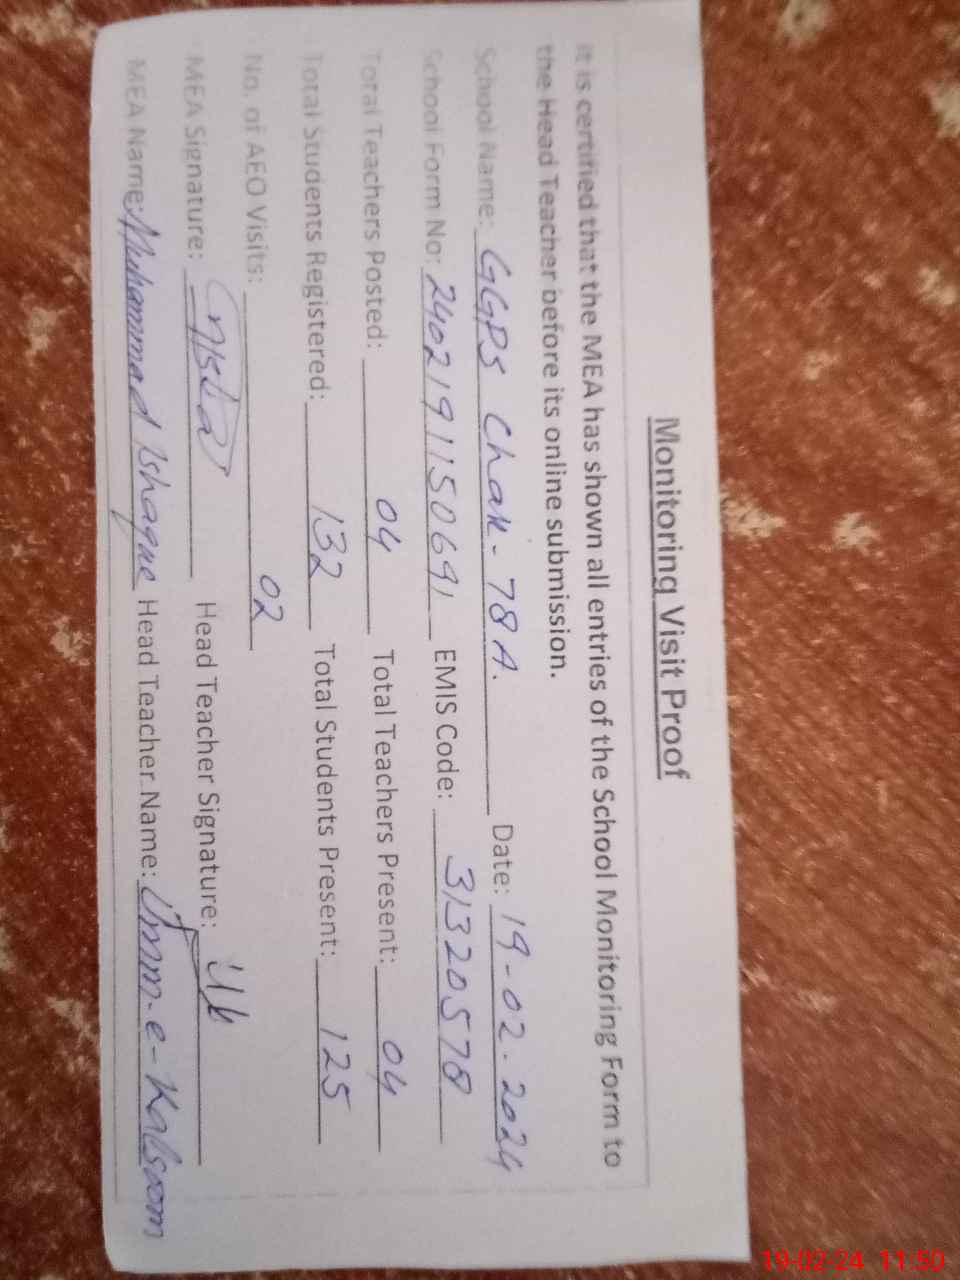 Monitoring Visit Proof
It is certified that the MEA has shown all entries of the School Monitoring Form to
the Head Teacher before its online submission.
School Name: GGPS Chak-78A. Date: 19-02-2024
School Form No: 2402191150691 EMIS Code: 31320578
Total Teachers Posted: 04 Total Teachers Present: 04
Total Students Registered: 132 Total Students Present: 125
No. of AEO Visits: 02
MEA Signature: Head Teacher Signature:
MEA Name: Muhammad Ishaque Head Teacher Name: Umm-e-Kalsoom
19-02-24 11:50